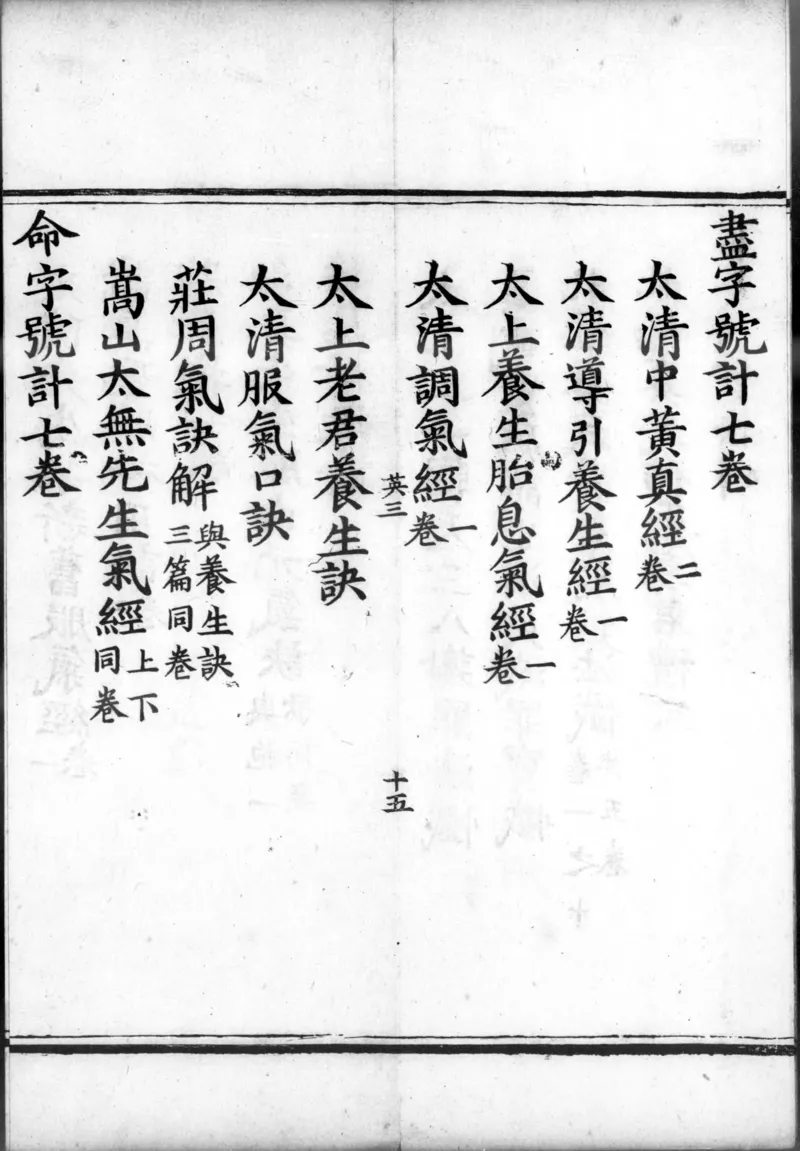 盡字號計七卷
太清中黃真經二卷
太清導引養生經一卷
太上養生胎息氣經一卷
太清調氣經一卷
英三
十五
太上老君養生訣
太清服氣口訣
莊周氣訣解與養生訣三篇同卷
嵩山太無先生氣經上下同卷
命字號計七卷